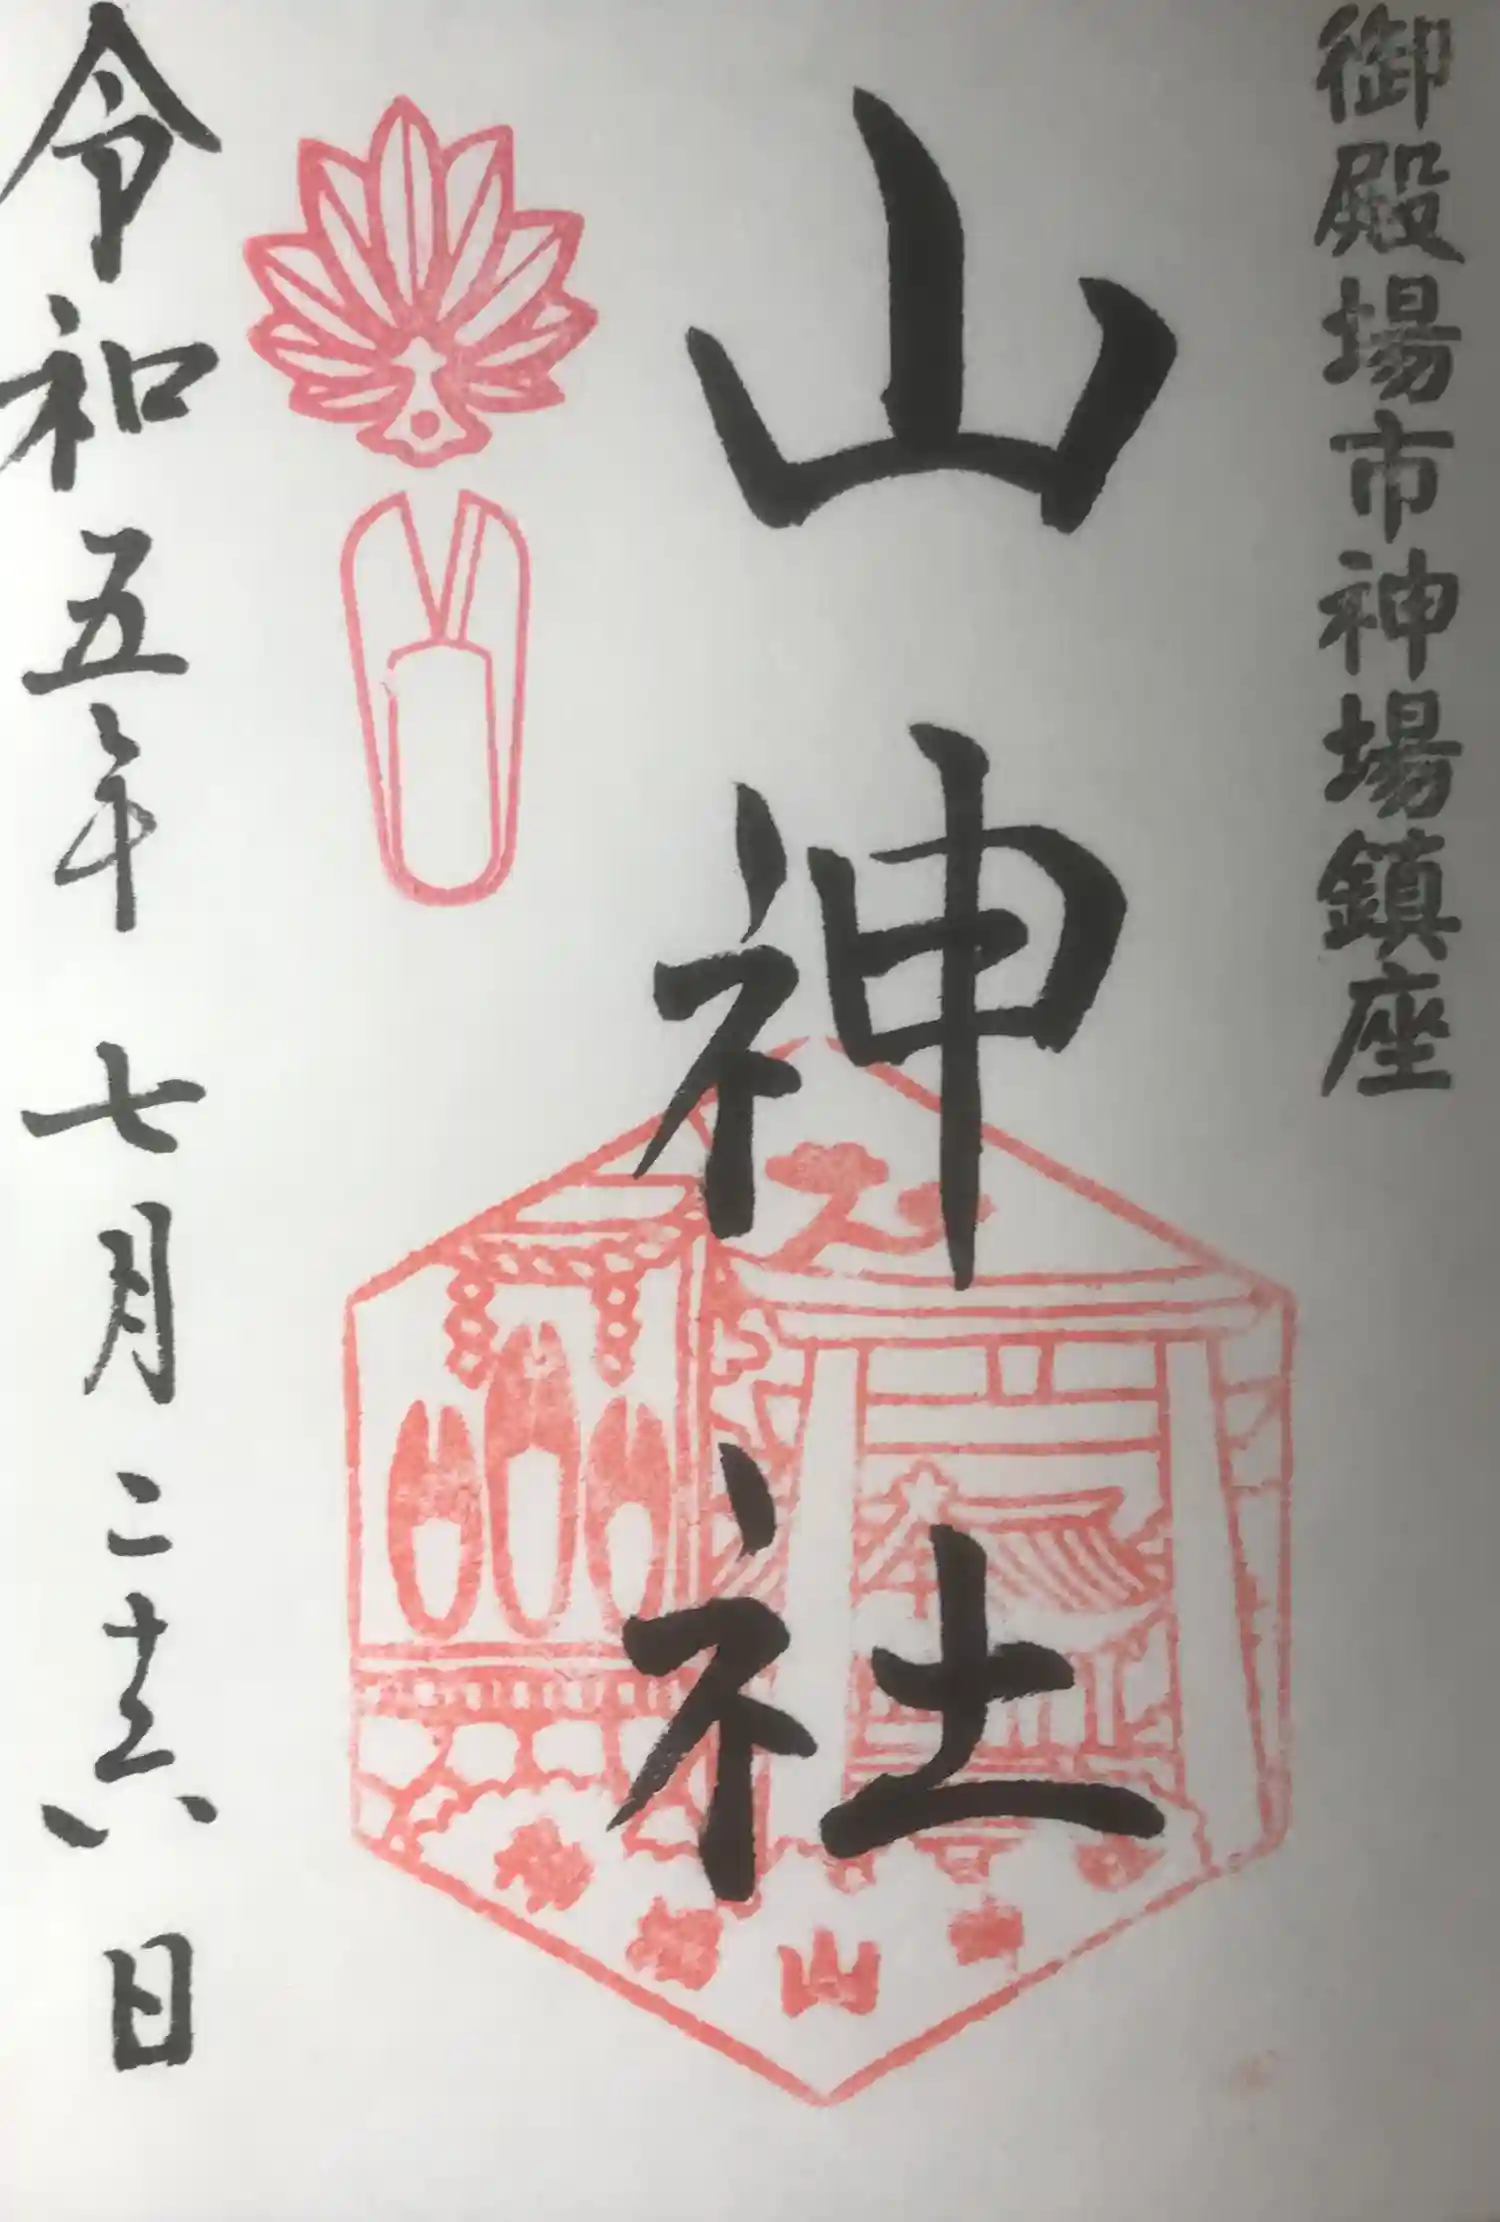 御殿場市神場鎮座
山神社
令和五年 七月二十六日